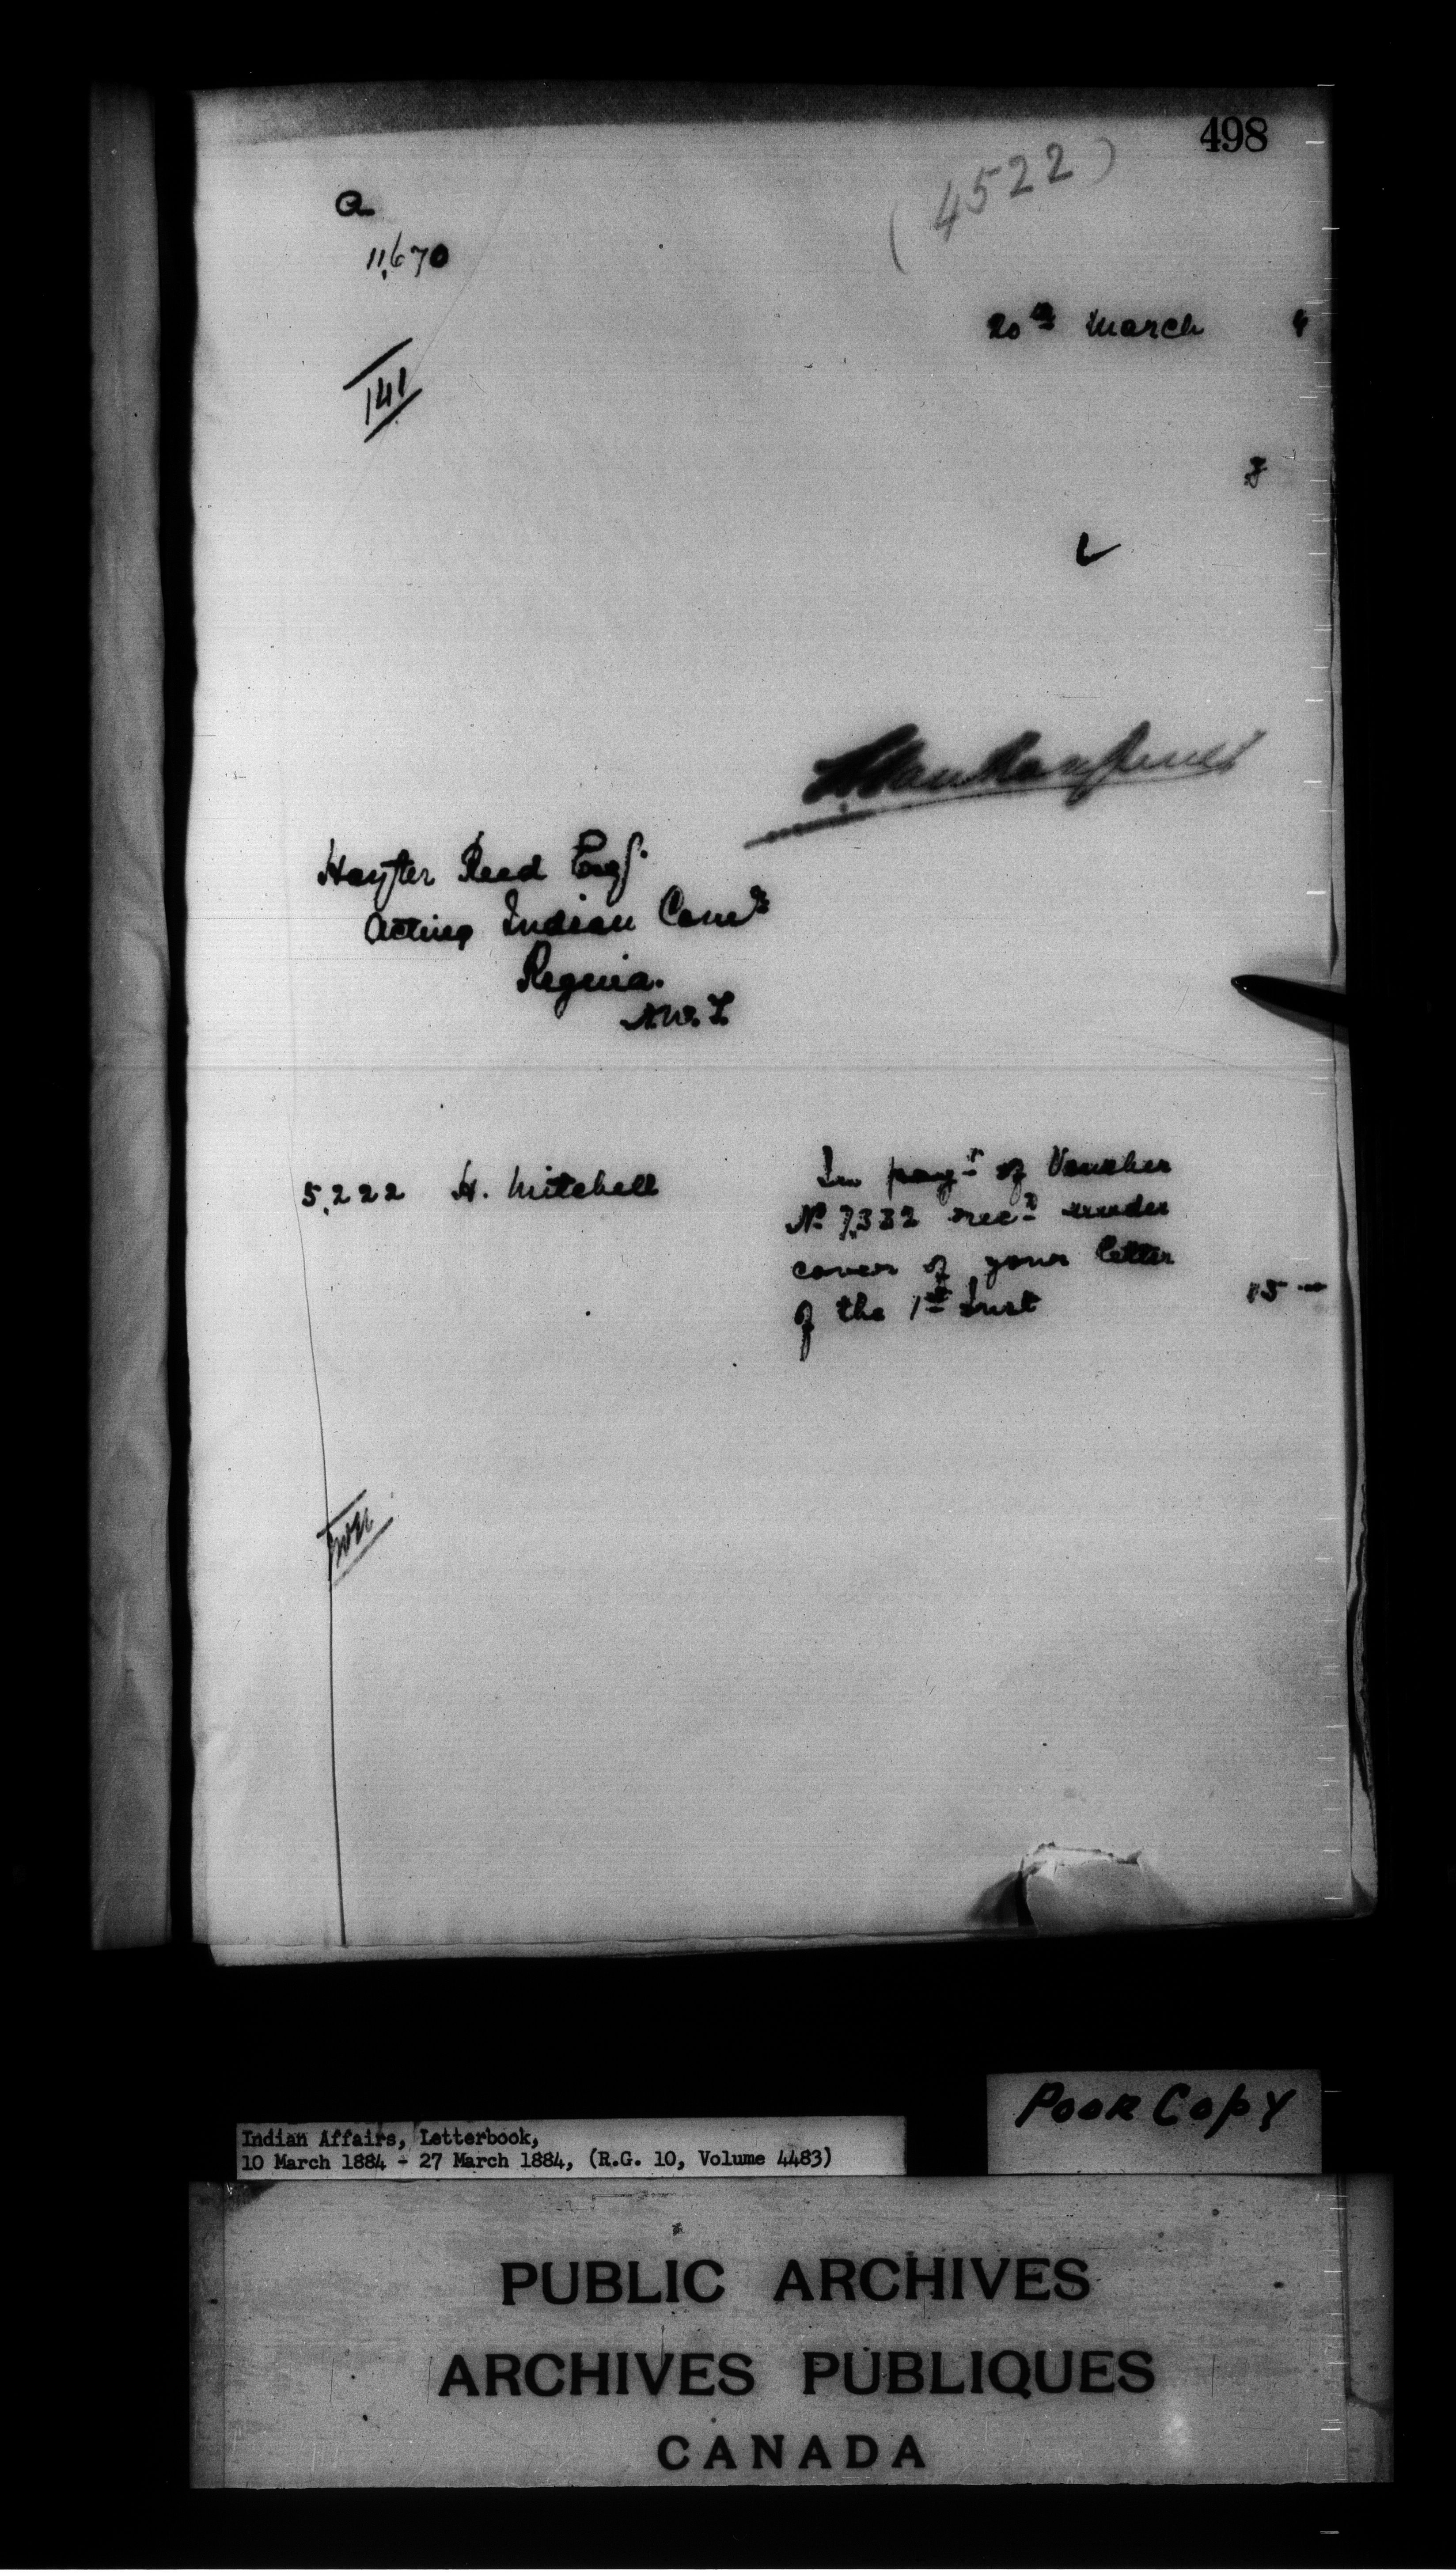 498
(4522)
a
11,670
20th March 4
141
Hayter Reed Esq.
Acting Indian Comr
Regina.
N.W.T.
5,222 H. Mitchell
In payt of Voucher
No 7,332 recd under
cover of your letter
of the 1st Inst 15
Poor Copy
Indian Affairs, Letterbook,
10 March 1884 - 27 March 1884, (R.G. 10, Volume 4483)
PUBLIC ARCHIVES
ARCHIVES PUBLIQUES
CANADA